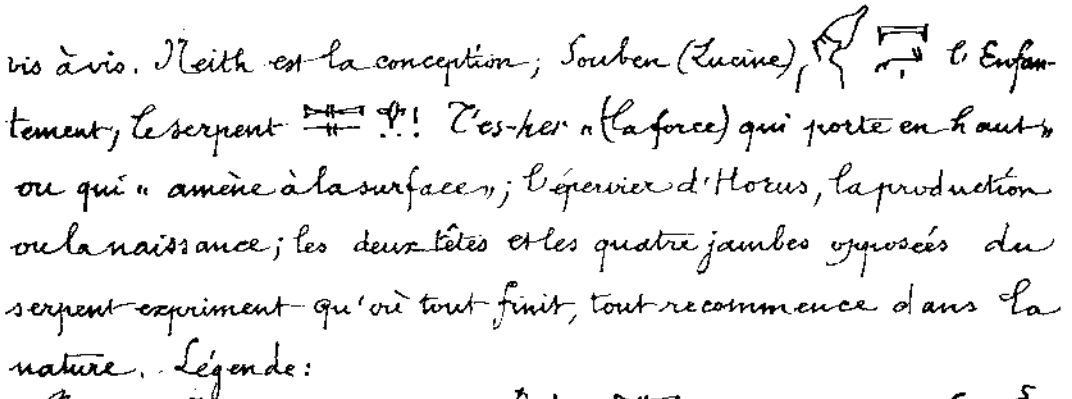 vis à vis. Neith est la conception; Souben (Lucine), l'Enfan-
tement, le serpent T'es-her « (la force) qui porte en haut »
ou qui « amène à la surface »; l'épervier d'Horus, la production
ou la naissance; les deux têtes et les quatre jambes opposées du
serpent expriment qu'où tout finit, tout recommence dans la
nature. Légende: